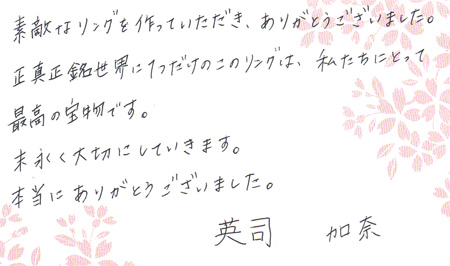 素敵なリングを作っていただき、ありがとうございました。
正真正銘世界に1つだけのこのリングは、私たちにとって
最高の宝物です。
末永く大切にしていきます。
本当にありがとうございました。
英司 加奈